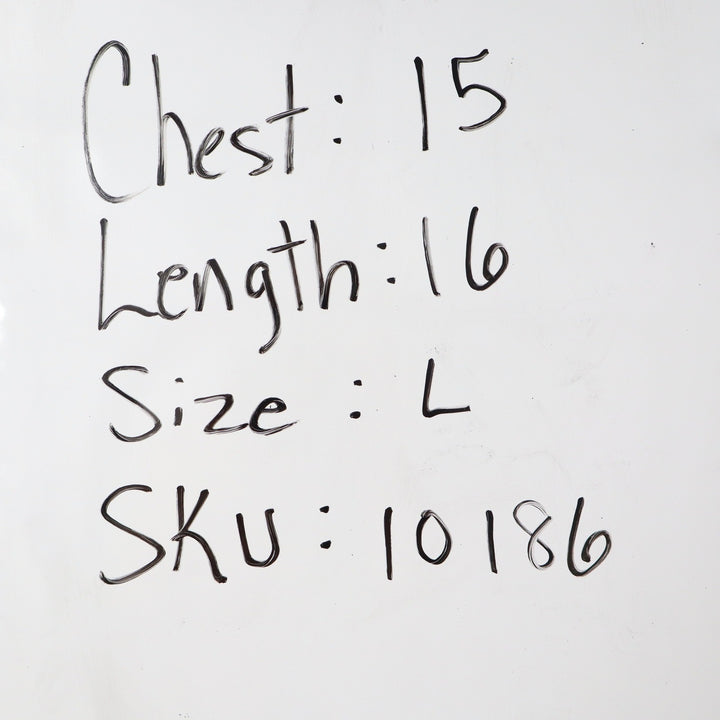 Chest: 15
Length: 16
Size : L
SKU: 10186